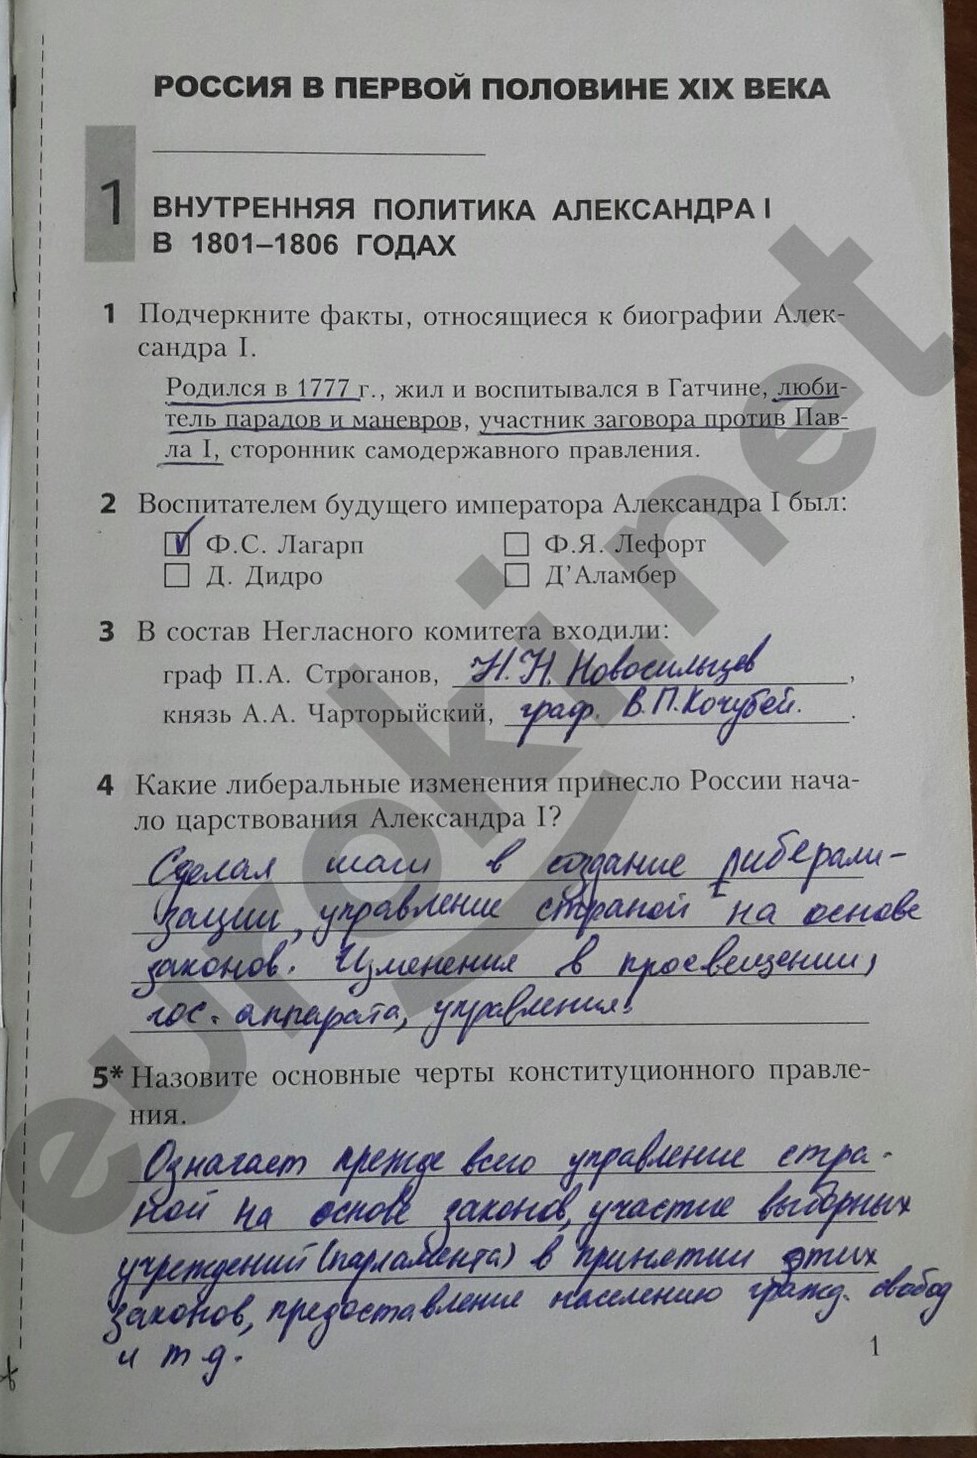 РОССИЯ В ПЕРВОЙ ПОЛОВИНЕ XIX ВЕКА
1
ВНУТРЕННЯЯ ПОЛИТИКА АЛЕКСАНДРА I
В 1801–1806 ГОДАХ
1 Подчеркните факты, относящиеся к биографии Алек-
сандра I.
Родился в 1777 г., жил и воспитывался в Гатчине, люби-
тель парадов и маневров, участник заговора против Пав-
ла I, сторонник самодержавного правления.
2 Воспитателем будущего императора Александра I был:
Ф.С. Лагарп Ф.Я. Лефорт
Д. Дидро Д’Аламбер
3 В состав Негласного комитета входили:
граф П.А. Строганов, Н.Н. Новосильцев,
князь А.А. Чарторыйский, граф. В.П.Кочубей.
4 Какие либеральные изменения принесло России нача-
ло царствования Александра I?
Сделал шаги в создание либерали-
зации, управление страной на основе
законов. Изменения в просвещении,
гос. аппарата, управления.
5* Назовите основные черты конституционного правле-
ния.
Означает прежде всего управление стра-
ной на основе законов, участие выборных
учреждений (парламента) в принятии этих
законов, предоставление населению гражд. свобод
и т д.
1
eurokinet